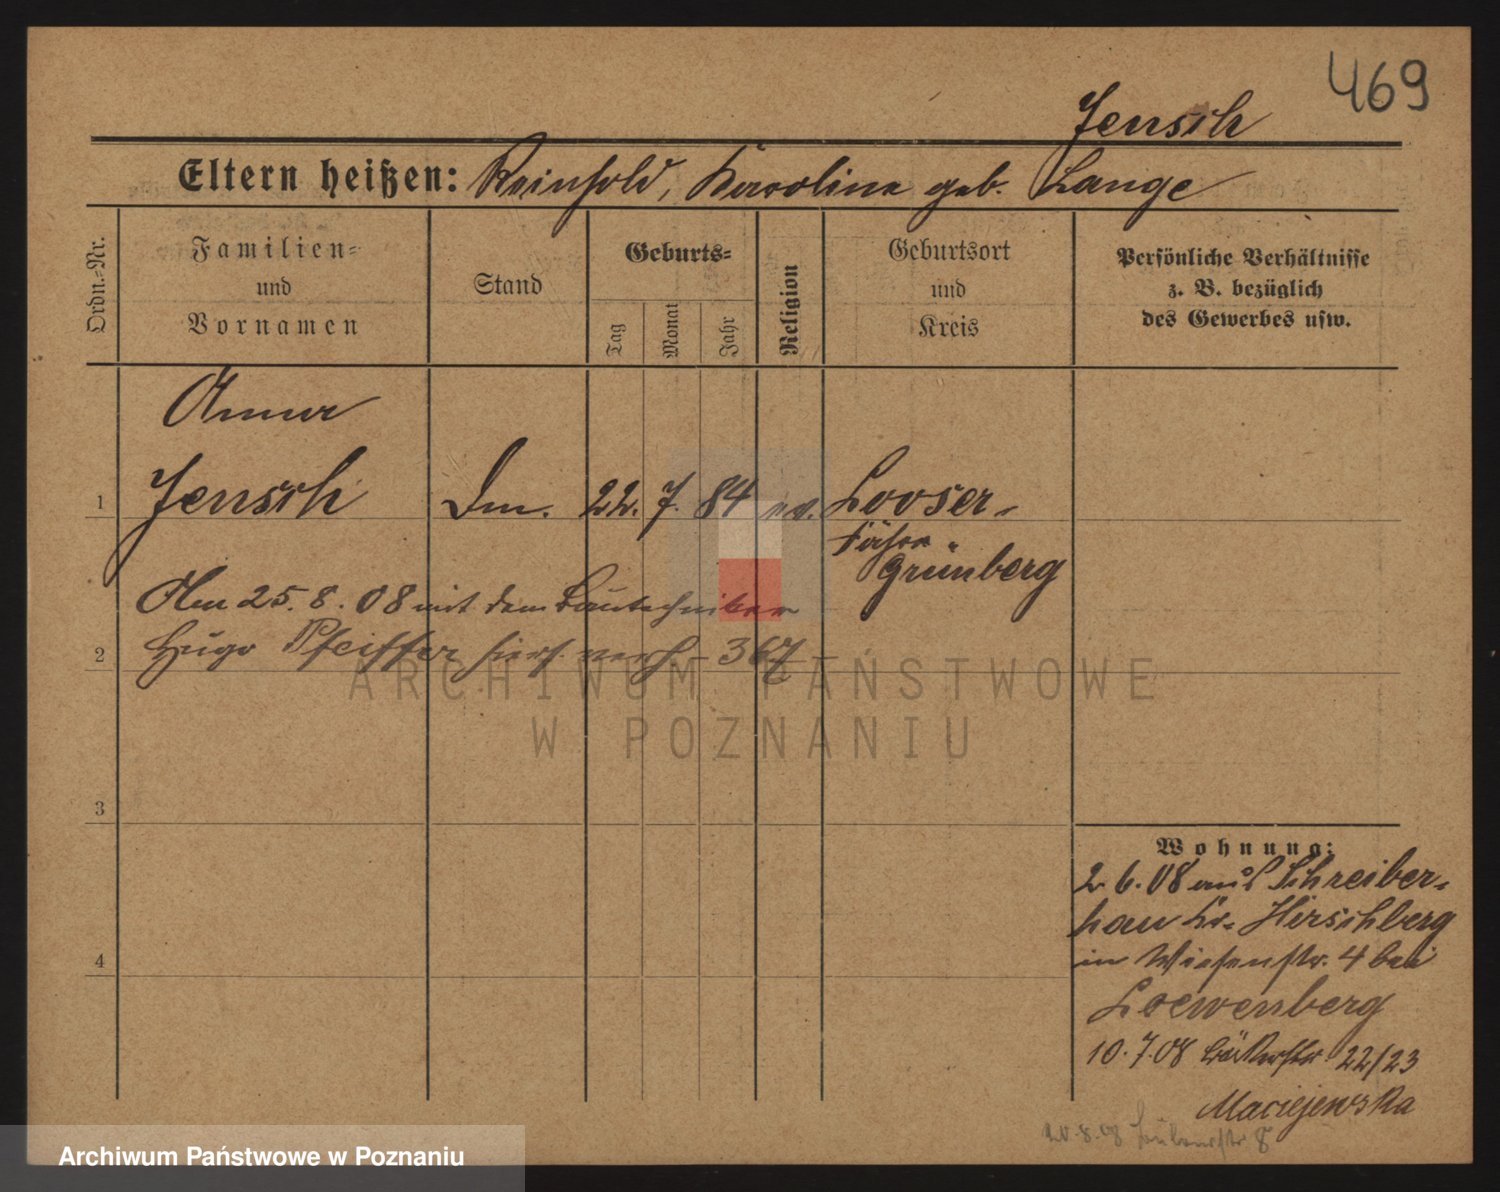 469
Jensch
Eltern heißen: Reinhold, Karoline geb. Lange
Ordn.-Nr.
Familien-
und
Vornamen
Stand
Geburts-
Tag
Monat
Jahr
Religion
Geburtsort
und
Kreis
Persönliche Verhältnisse
z. B. bezüglich
des Gewerbes usw.
Anna
1 Jensch
22. 7. 84 ev. Looser-
Grünberg
Am 25. 8. 08 mit dem Bautechniker
2 Hugo Pfeiffer hies. verh 367
3
4
Wohnung:
2. 6. 08 aus Schreiber-
hau Kr. Hirschberg
in Wiesenstr. 4 bei
Loewenberg
10. 7. 08 Bäckerstr 22/23
Maciejewska
8
ARCHIWUM PAŃSTWOWE
W POZNANIU
Archiwum Państwowe w Poznaniu